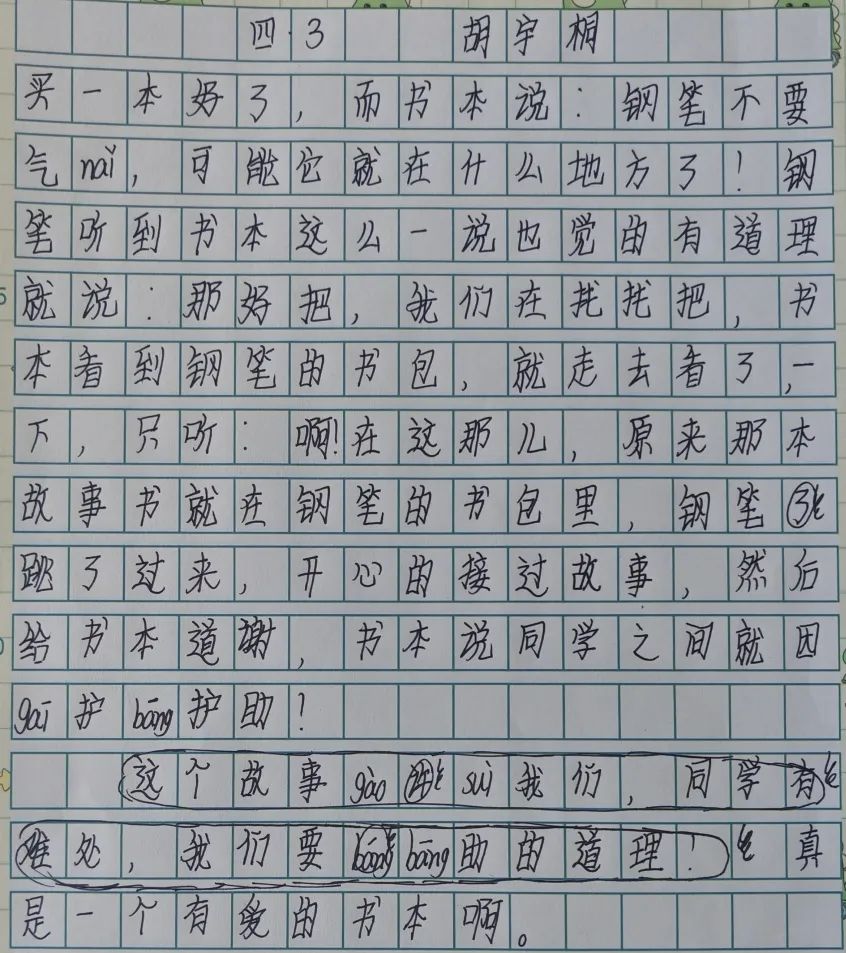 四.3 胡宇桐
买一本好了，而书本说：钢笔不要
气nǎi，可能它就在什么地方了！钢
笔听到书本这么一说也觉的有道理
就说：那好把，我们在找找把，书
本看到钢笔的书包，就走去看了，一
下，只听：啊！在这那儿，原来那本
故事书就在钢笔的书包里，钢笔
跳了过来，开心的接过故事，然后
给书本道谢，书本说同学之间就因
gaī护bāng护助！
这个故事gào suì我们，同学有
难处，我们要bāng bāng助的道理！真
是一个有爱的书本啊。